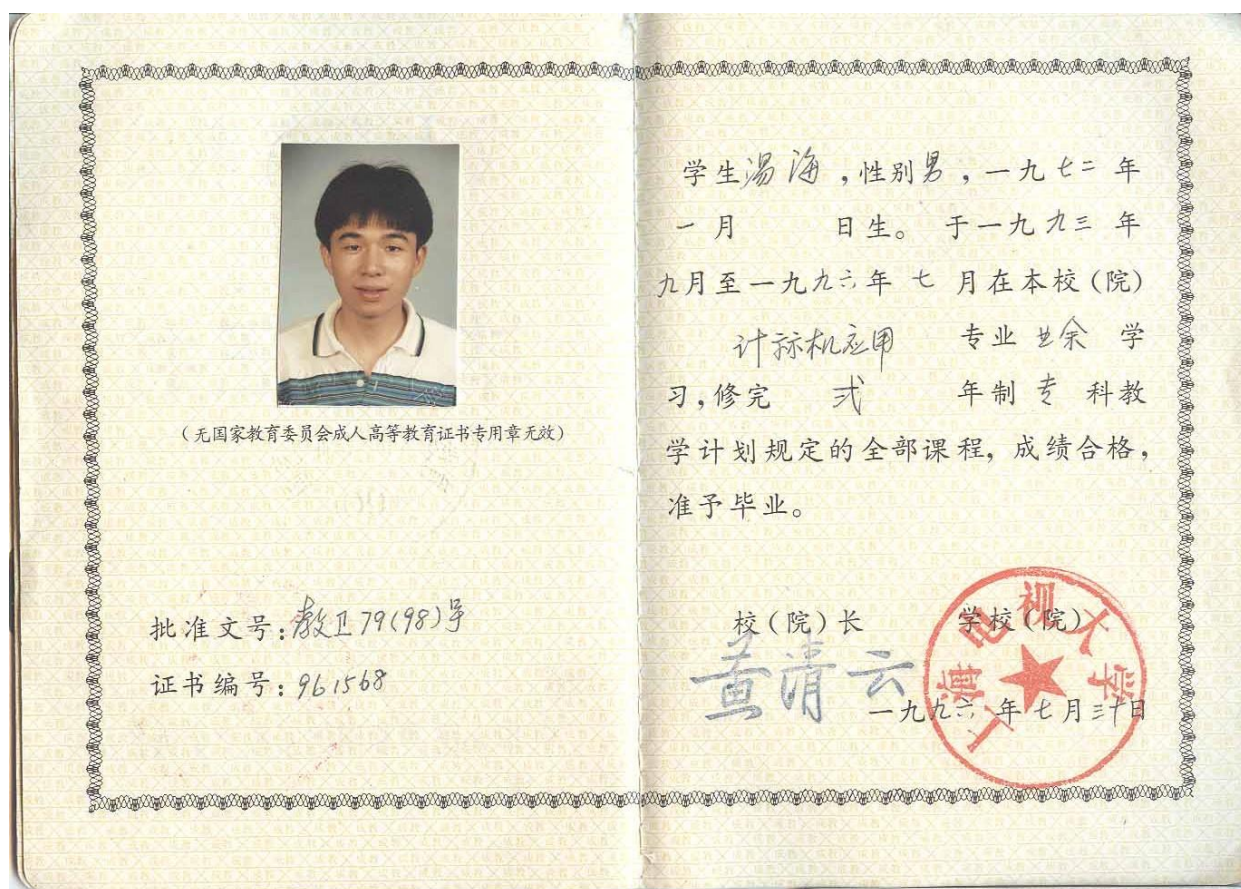 (无国家教育委员会成人高等教育证书专用章无效)
批准文号:教卫79(98)号
证书编号:961568
学生湯海,性别男,一九七二年
一月 日生。于一九九三年
九月至一九九六年七月在本校(院)
计祘机应用 专业业余学
习,修完 弍 年制专科教
学计划规定的全部课程,成绩合格,
准予毕业。
校(院)长 学校(院)
黄清云
上海电视大学
一九九六年七月三十日